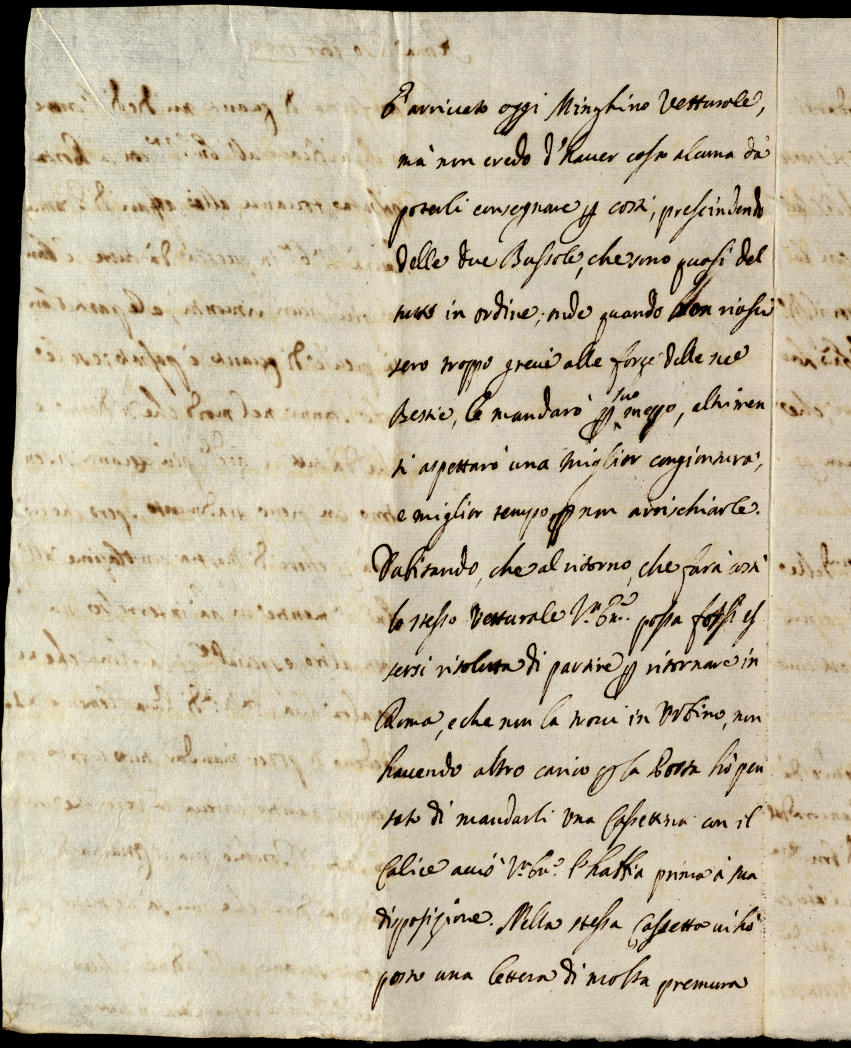 E' arrivato oggi Minghino Vetturale,
mà non credo d'haver cosa alcuna dà
poterli consegnare p costì, prescindendo
delle due Bussole, che sono quasi del
tutto in ordine; onde quando non riusci
sero troppo grevi alle forze delle sue
Bestie, le mandarò p suo mezzo, altrimen
ti aspettarò una miglior congiontura,
e miglior tempo p non arrischiarle.
Dubitando, che al ritorno, che farà costì
lo stesso Vetturale V. Em. possa forsi es
sersi risoluta di partire p ritornare in
Roma, e che non la trovi in Urbino, non
havendo altro carico p la Posta hò pen
sato di mandarli una Cassettina con il
Calice acciò V. Em. l'habbia prima à sua
disposizione. Nella stessa Cassetta vi hò
posto una lettera di molta premura